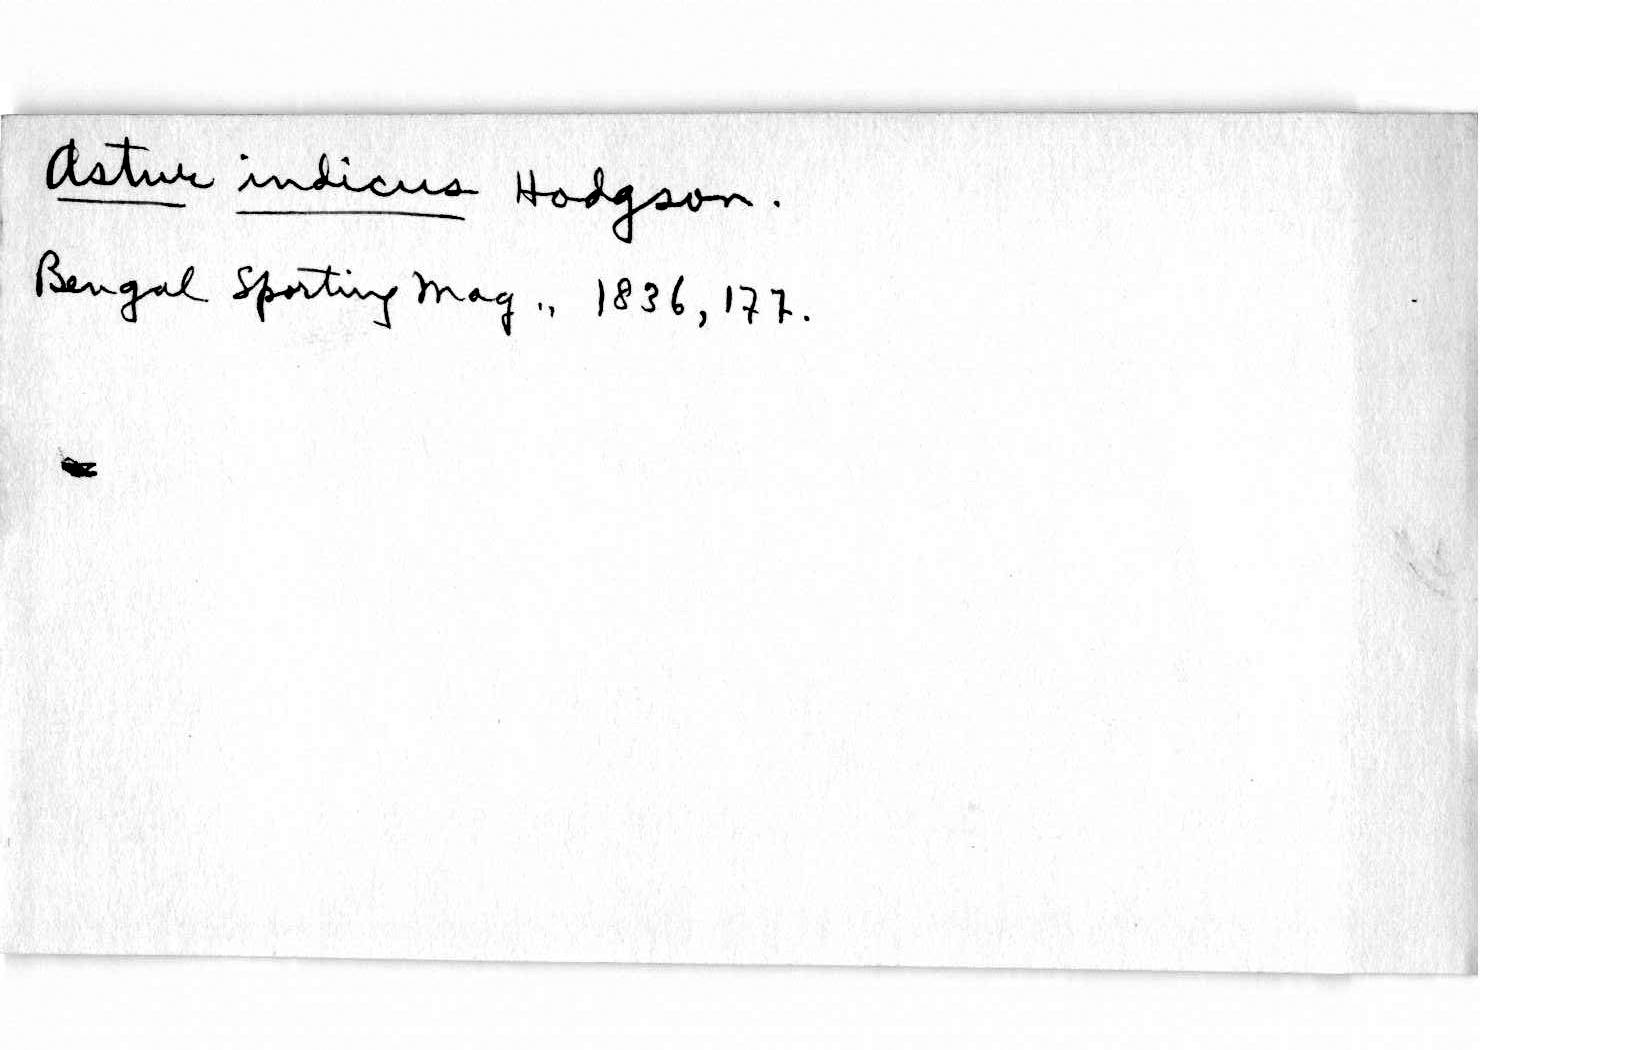 Astur indicus Hodgson.
Bengal Sporting Mag., 1836, 177.